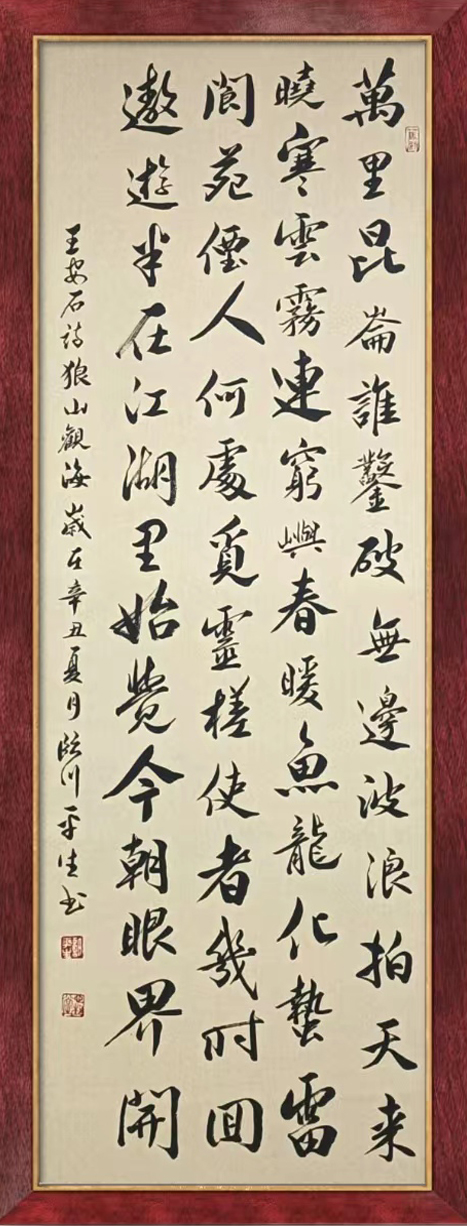 萬里昆崙誰鑿破無邊波浪拍天来
曉寒雲霧連窮嶼春暖魚龍化蟄雷
閬苑僊人何處覓靈槎使者幾时回
遨遊半在江湖里始覺今朝眼界開
王安石詩狼山觀海歲在辛丑夏月臨川平生书